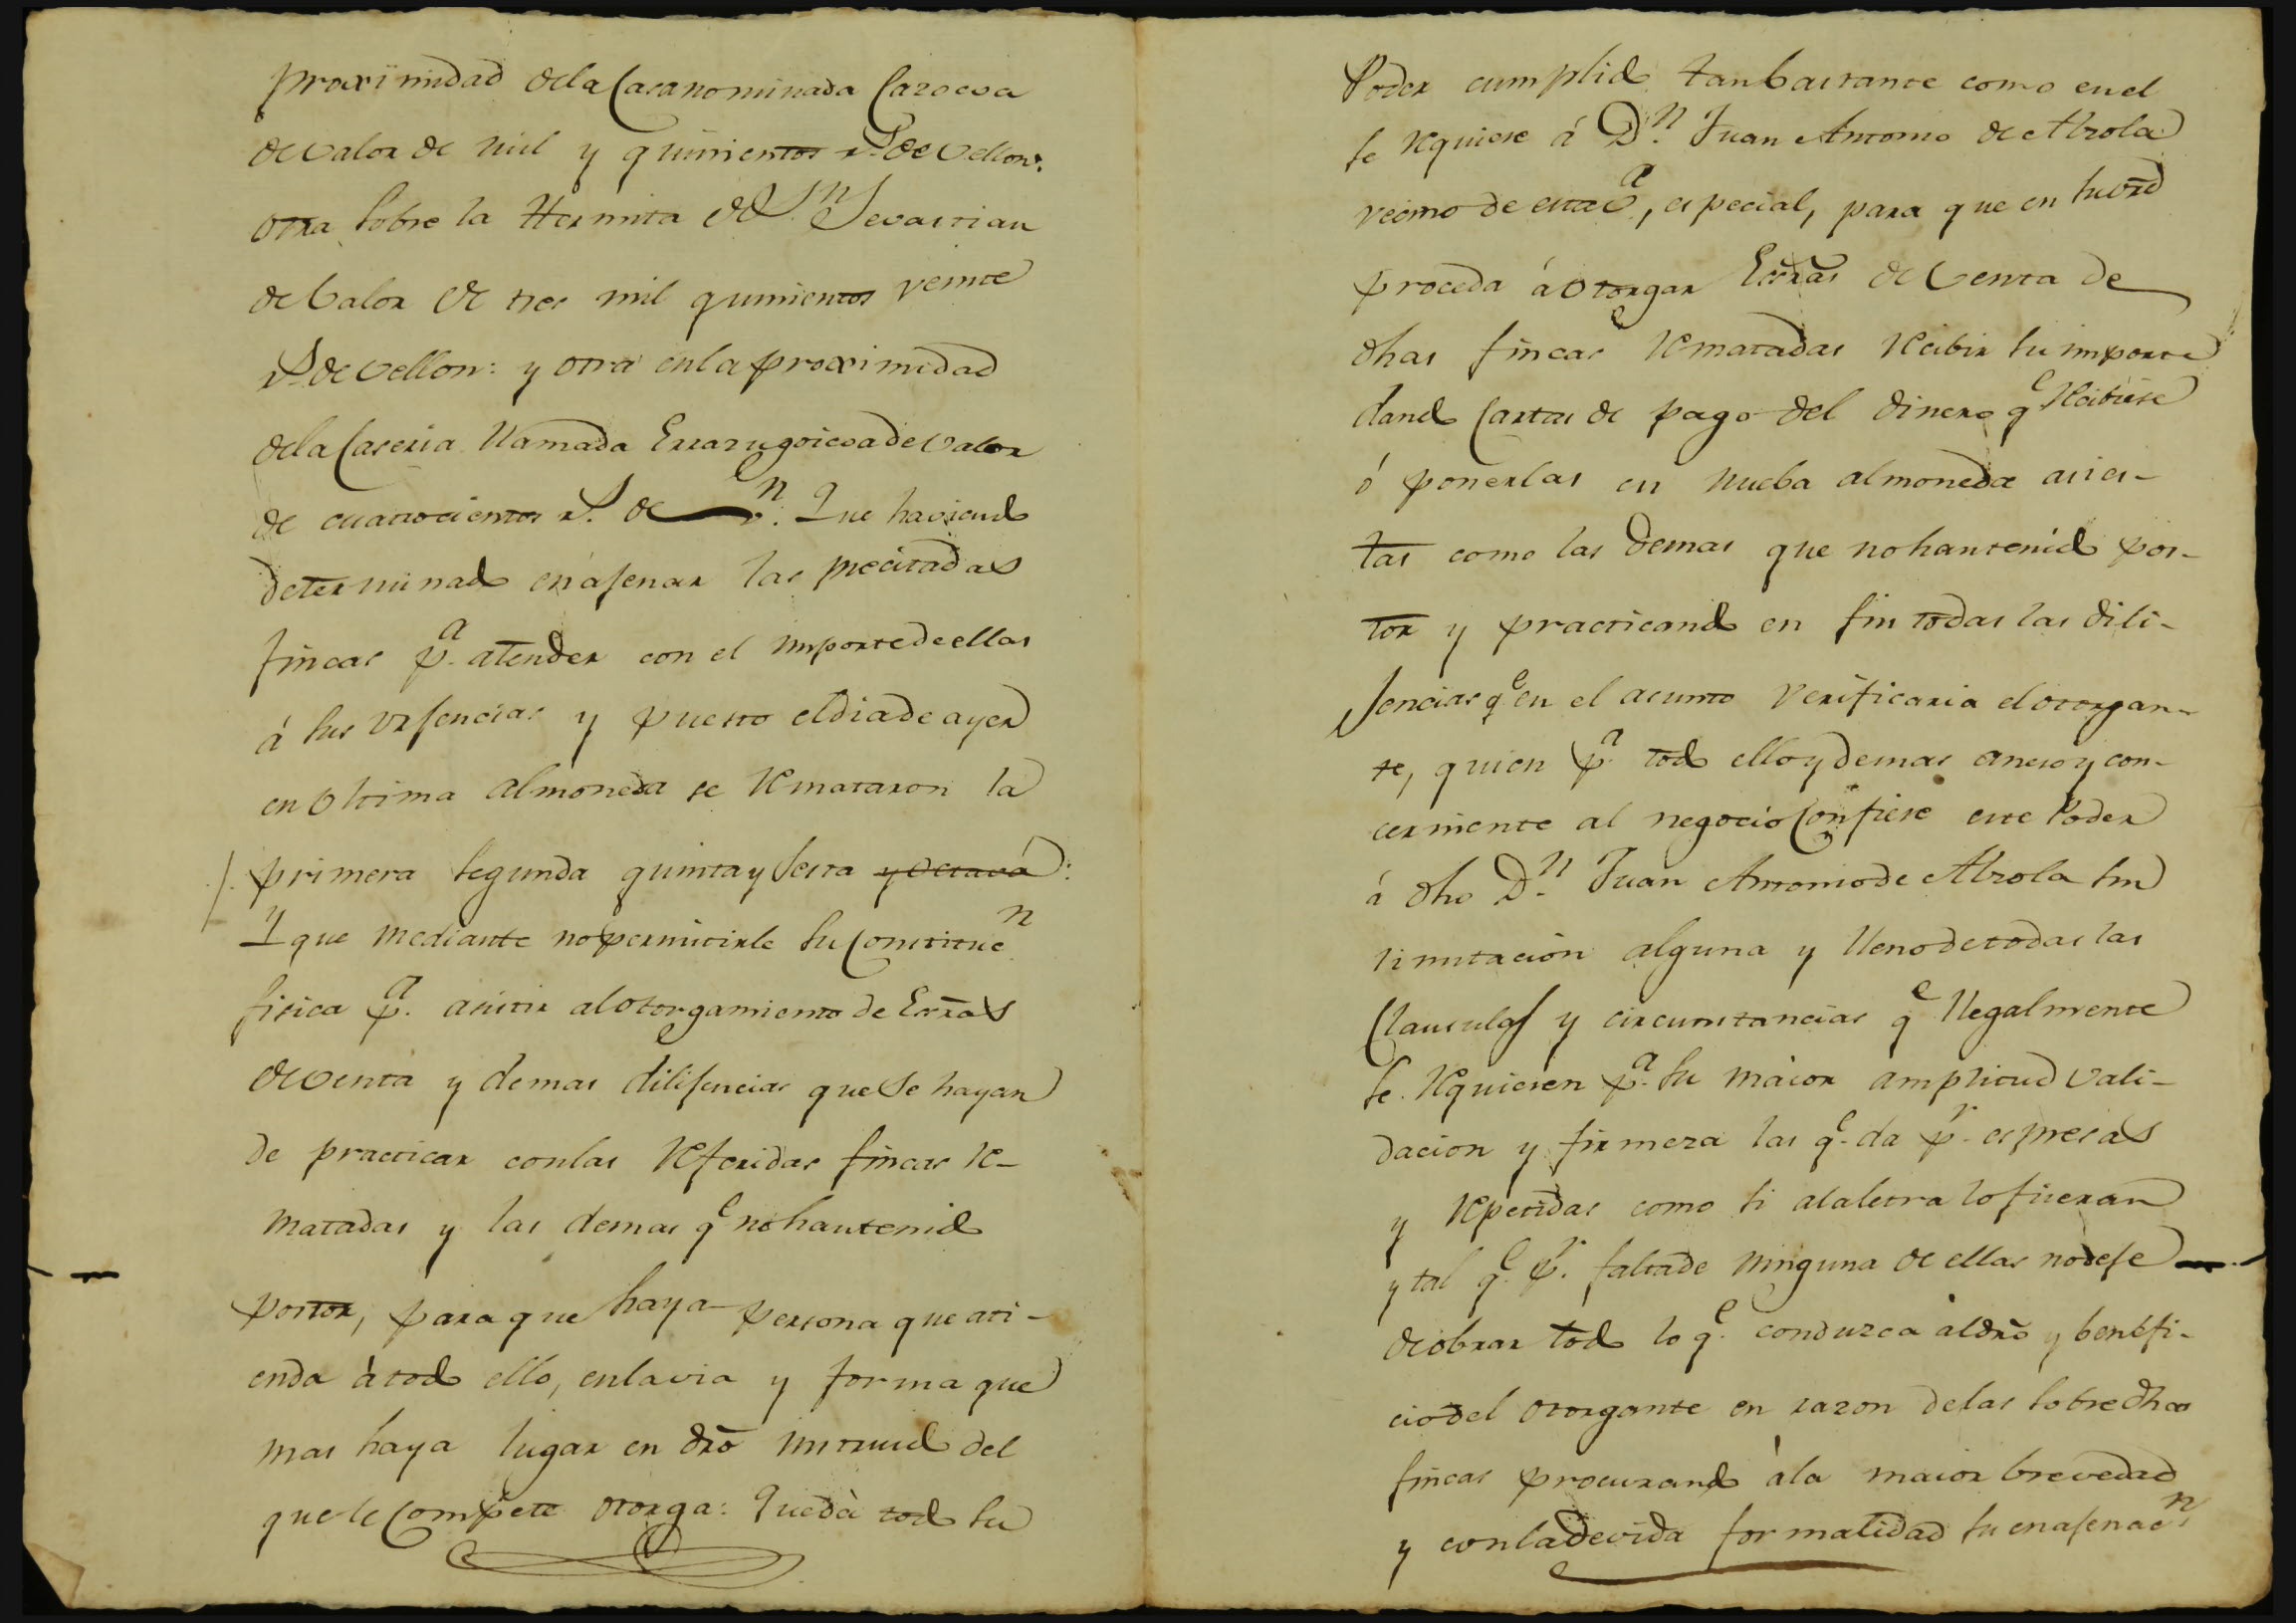 proximidad de la Casa nominada Carocva
de valor de mil y quinientos r.s de vellon:
otra sobre la Hermita de S.n Sevastian
de balor de tres mil quinientos veinte
r.s de vellon: y otra en la proximidad
de la Caseria llamada Errazugoicoa de valor
de cuatrocientos r.s de v.n Que haviendo
determinado enajenar las precitadas
fincas p.a atender con el importe de ellas
á sus urjencias y puesto el dia de ayer
en Ultima almoneda se remataron la
primera segunda quinta y sesta y octava:
Y que mediante no permitirle su Constituc.n
fisica p.a asistir al otorgamiento de Escrás
de venta y demas dilijencias que se hayan
de practicar con las referidas fincas re-
matadas y las demas q.e no han tenido
postor, para que haya persona que ati-
enda á todo ello, en la via y forma que
mas haya lugar en dro instruido del
que le Compete otorga: Que dá todo su
Poder cumplido tan bastante como en el
se requiere á D.n Juan Antonio de Abrola
vecino de esta v.a, especial, para que en su vrd
proceda á otorgar Escrás de Venta de
dhas fincas rematadas recibir su importe
dando Cartas de pago del dinero q.e recibiese
ó ponerlas en nueba almoneda asi es-
tas como las demas que no han tenido pos-
tor y practicando en fin todas las dili-
jencias q.e en el asunto verificaria el otorgan-
te, quien p.a todo ello y demas anexo y con-
cerniente al negocio Confiere este Poder
á dho D.n Juan Antonio de Abrola sin
limitacion alguna y lleno de todas las
Clausulas y circunstancias q.e legalmente
se requieren p.a su maior amplitud vali-
dacion y firmeza las q.e da p.r espresas
y repetidas como si a la letra lo fueran
y tal q.e p.r falta de ninguna de ellas no deje
de obrar todo lo q.e conduzca al dro y benefi-
cio del otorgante en razon de las sobre dhas
fincas procurando á la maior brevedad
y con la devida formalidad su enajenac.n